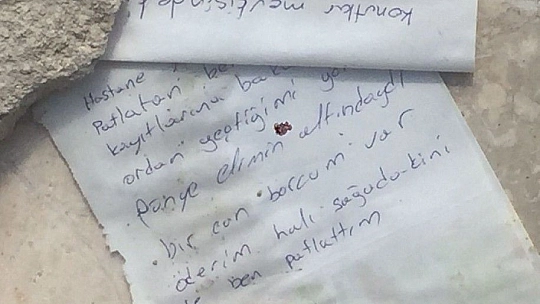 konutlar mevkisinde
Hastane
Patlatan ben
kayıtlarına bakın
ordan geçtiğimi
Penye elimin altındaydı
bir can borcum var
öderim hali sağdakini
de ben patlattım